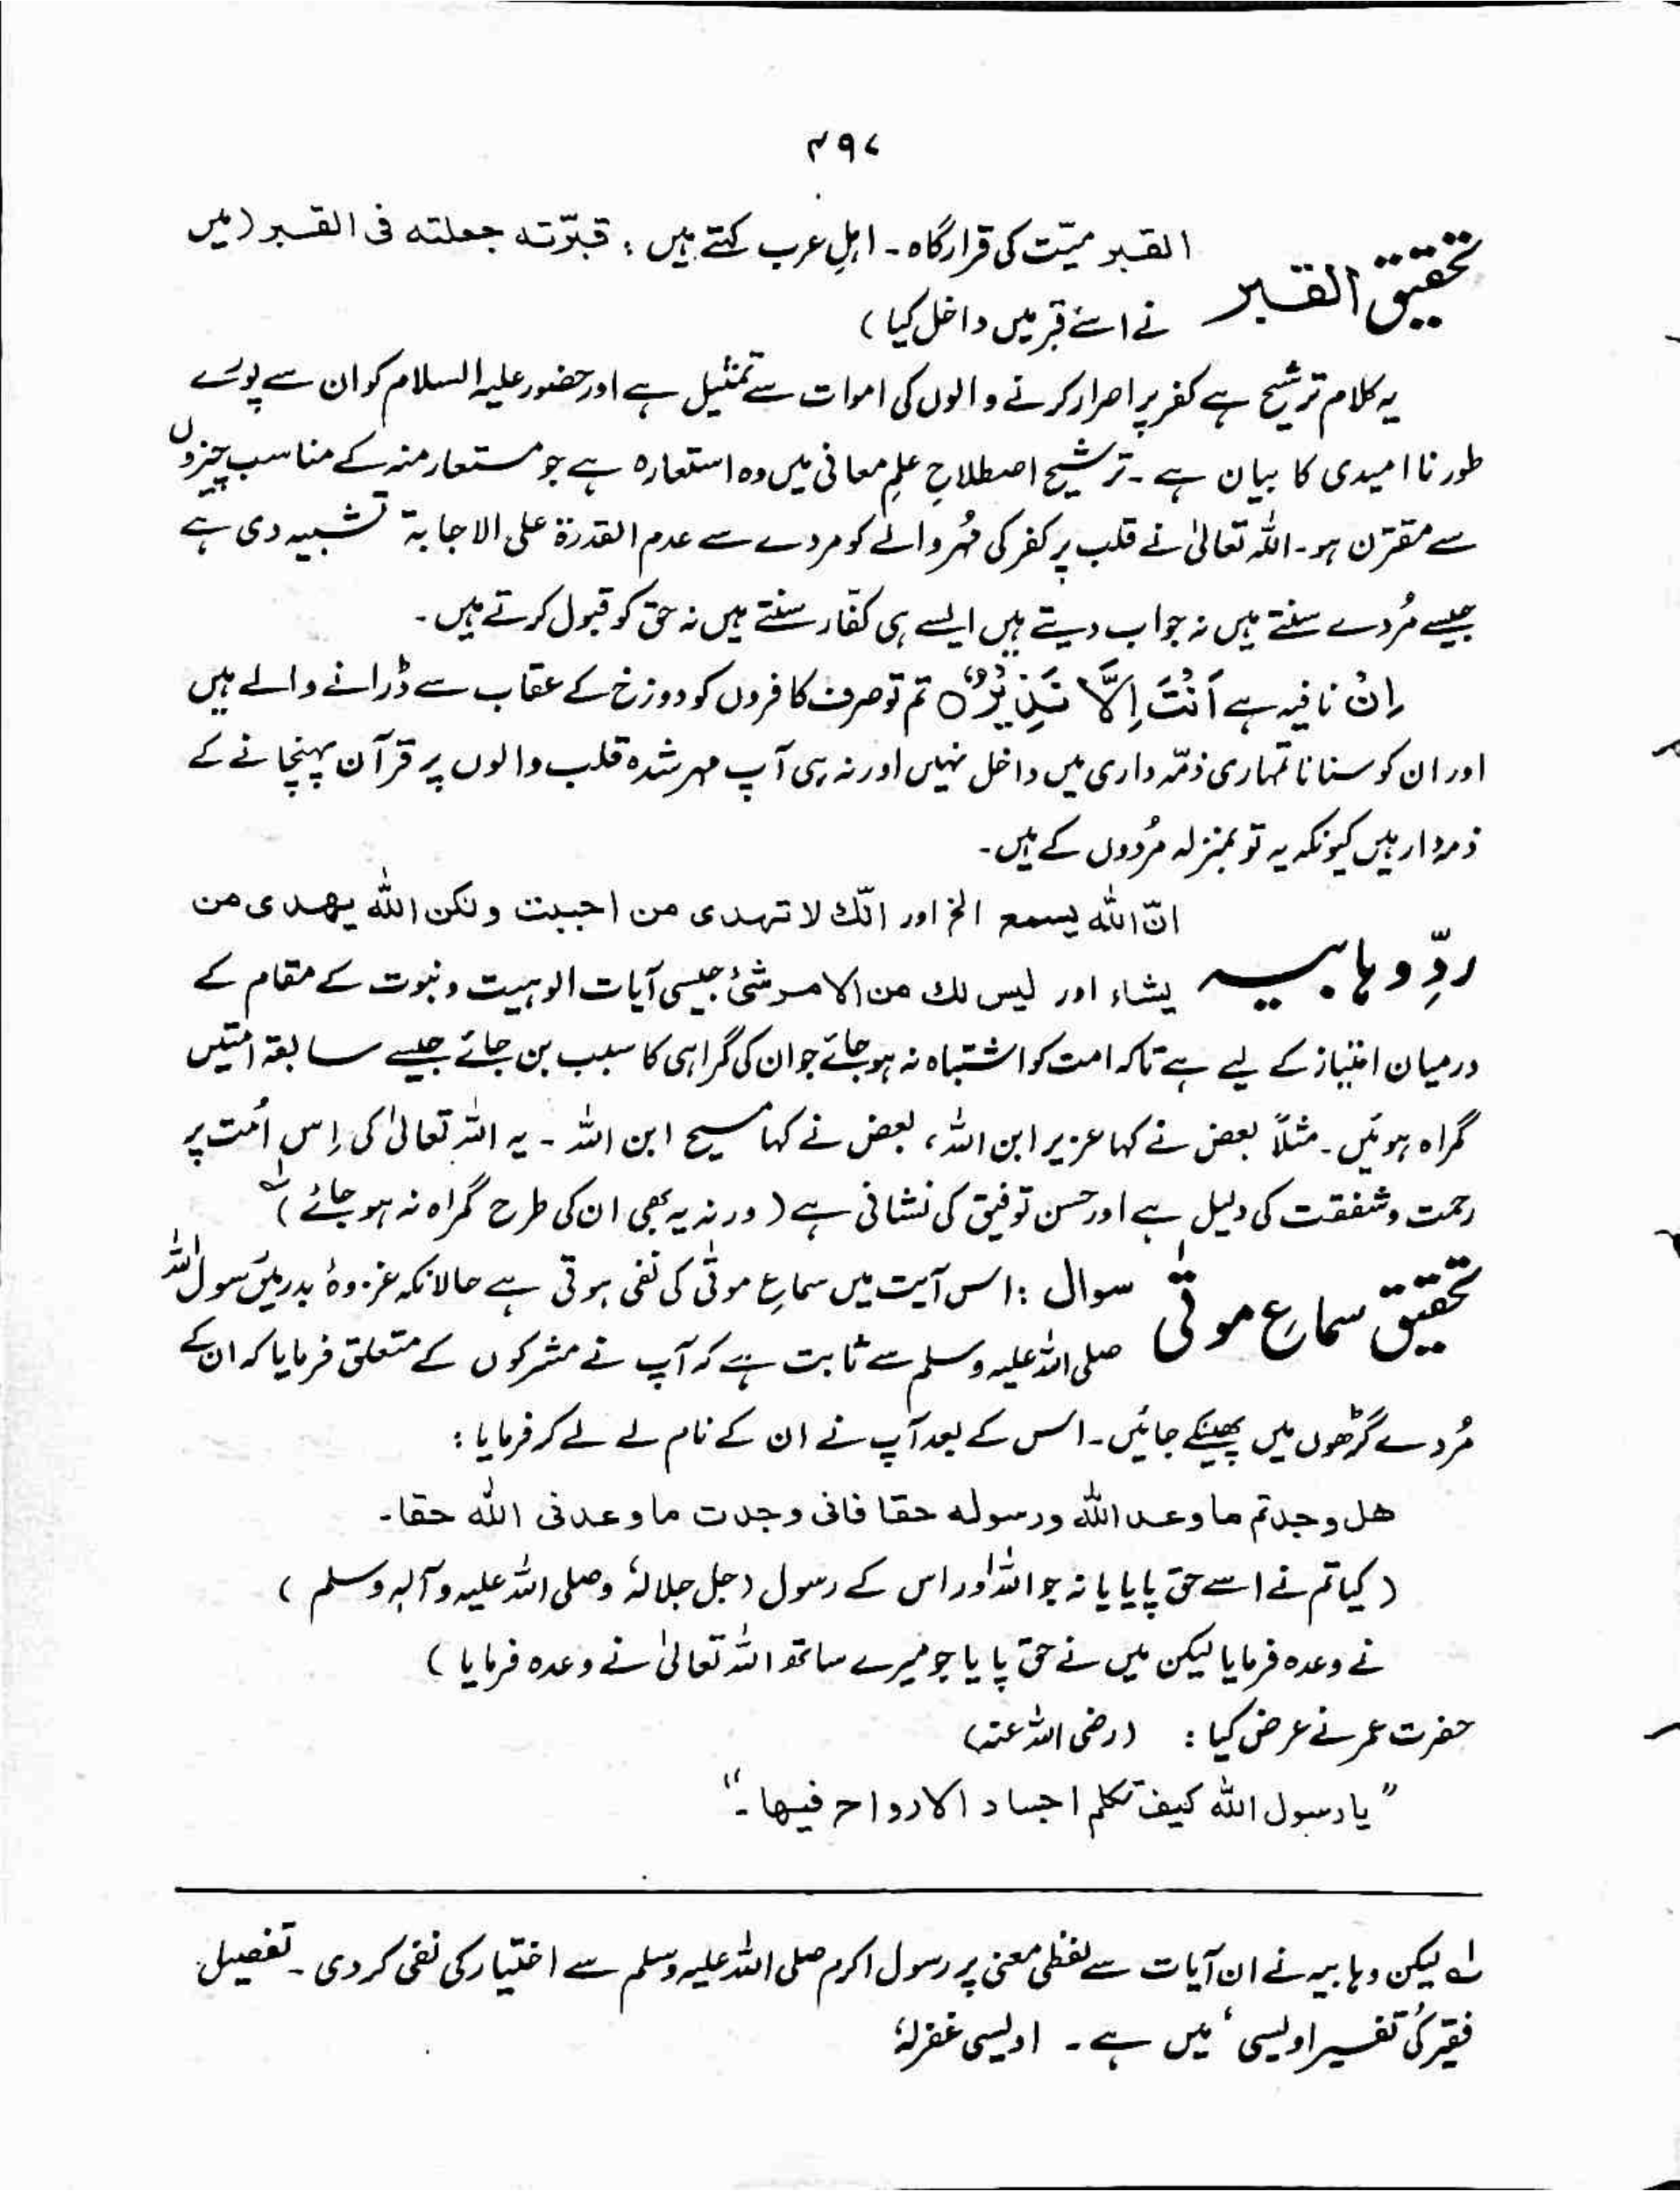 ۴۹۷
تحقیق القبر
القبر میّت کی قرارگاہ۔ اہلِ عرب کہتے ہیں : قبرّته جعلته فی القبر (میں
نے اسے قبر میں داخل کیا)
یہ کلام ترشیح ہے کفر پر اصرار کرنے والوں کی اموات سے تمثیل ہے اور حضور علیہ السلام کو ان سے پورے
طور ناامیدی کا بیان ہے۔ ترشیح اصطلاحِ علمِ معانی میں وہ استعارہ ہے جو مستعار منہ کے مناسب چیزوں
سے مقترن ہو۔ اللہ تعالیٰ نے قلب پر کفر کی مُہر والے کو مردے سے عدم القدرۃ علی الاجابۃ تشبیہ دی ہے
جیسے مُردے سنتے ہیں نہ جواب دیتے ہیں ایسے ہی کفّار سنتے ہیں نہ حق کو قبول کرتے ہیں۔
اِنْ نافیہ ہے اَنْتَ اِلَّا نَذِیْرٌ○ تم تو صرف کافروں کو دوزخ کے عقاب سے ڈرانے والے ہیں
اور ان کو سنانا تمہاری ذمّہ داری میں داخل نہیں اور نہ ہی آپ مہر شدہ قلب والوں پر قرآن پہنچانے کے
ذمہ دار ہیں کیونکہ یہ تو بمنزلہ مُردوں کے ہیں۔
ردِّ وہابیہ
انّ اللہ یسمع الخ اور انّك لا تهدی من احببت ولكن الله یهدی من
یشاء اور لیس لك من الامر شئ جیسی آیات الوہیت و نبوت کے مقام کے
درمیان امتیاز کے لیے ہے تاکہ امت کو اشتباہ نہ ہو جائے جو ان کی گمراہی کا سبب بن جائے جیسے سابقہ امتیں
گمراہ ہوئیں۔ مثلاً بعض نے کہا عزیر ابن اللہ، بعض نے کہا مسیح ابن اللہ۔ یہ اللہ تعالیٰ کی اِس اُمت پر
رحمت و شفقت کی دلیل ہے اور حسن توفیق کی نشانی ہے (ورنہ یہ بھی ان کی طرح گمراہ نہ ہو جائے)؂۱
تحقیق سماعِ موتٰی
سوال : اس آیت میں سماعِ موتٰی کی نفی ہوتی ہے حالانکہ غزوۂ بدر میں رسول اللہ
صلی اللہ علیہ وسلم سے ثابت ہے کہ آپ نے مشرکوں کے متعلق فرمایا کہ ان کے
مُردے گڑھوں میں پھینکے جائیں۔ اس کے بعد آپ نے ان کے نام لے لے کر فرمایا :
هل وجدتم ما وعد الله ورسوله حقا فانی وجدت ما وعدنی الله حقا۔
(کیا تم نے اسے حق پایا یا نہ جو اللہ اور اس کے رسول (جل جلالہٗ وصلی اللہ علیہ وآلہٖ وسلم)
نے وعدہ فرمایا لیکن میں نے حق پایا جو میرے ساتھ اللہ تعالیٰ نے وعدہ فرمایا)
حضرت عمر نے عرض کیا : (رضی اللہ عنہ)
"یا رسول الله كیف تكلم اجساد الارواح فیها۔"
؂۱ لیکن وہابیہ نے ان آیات سے لفظی معنی پر رسول اکرم صلی اللہ علیہ وسلم سے اختیار کی نفی کر دی۔ تفصیل
فقیر کی 'تفسیر اویسی' میں ہے۔ اویسی غفرلہٗ